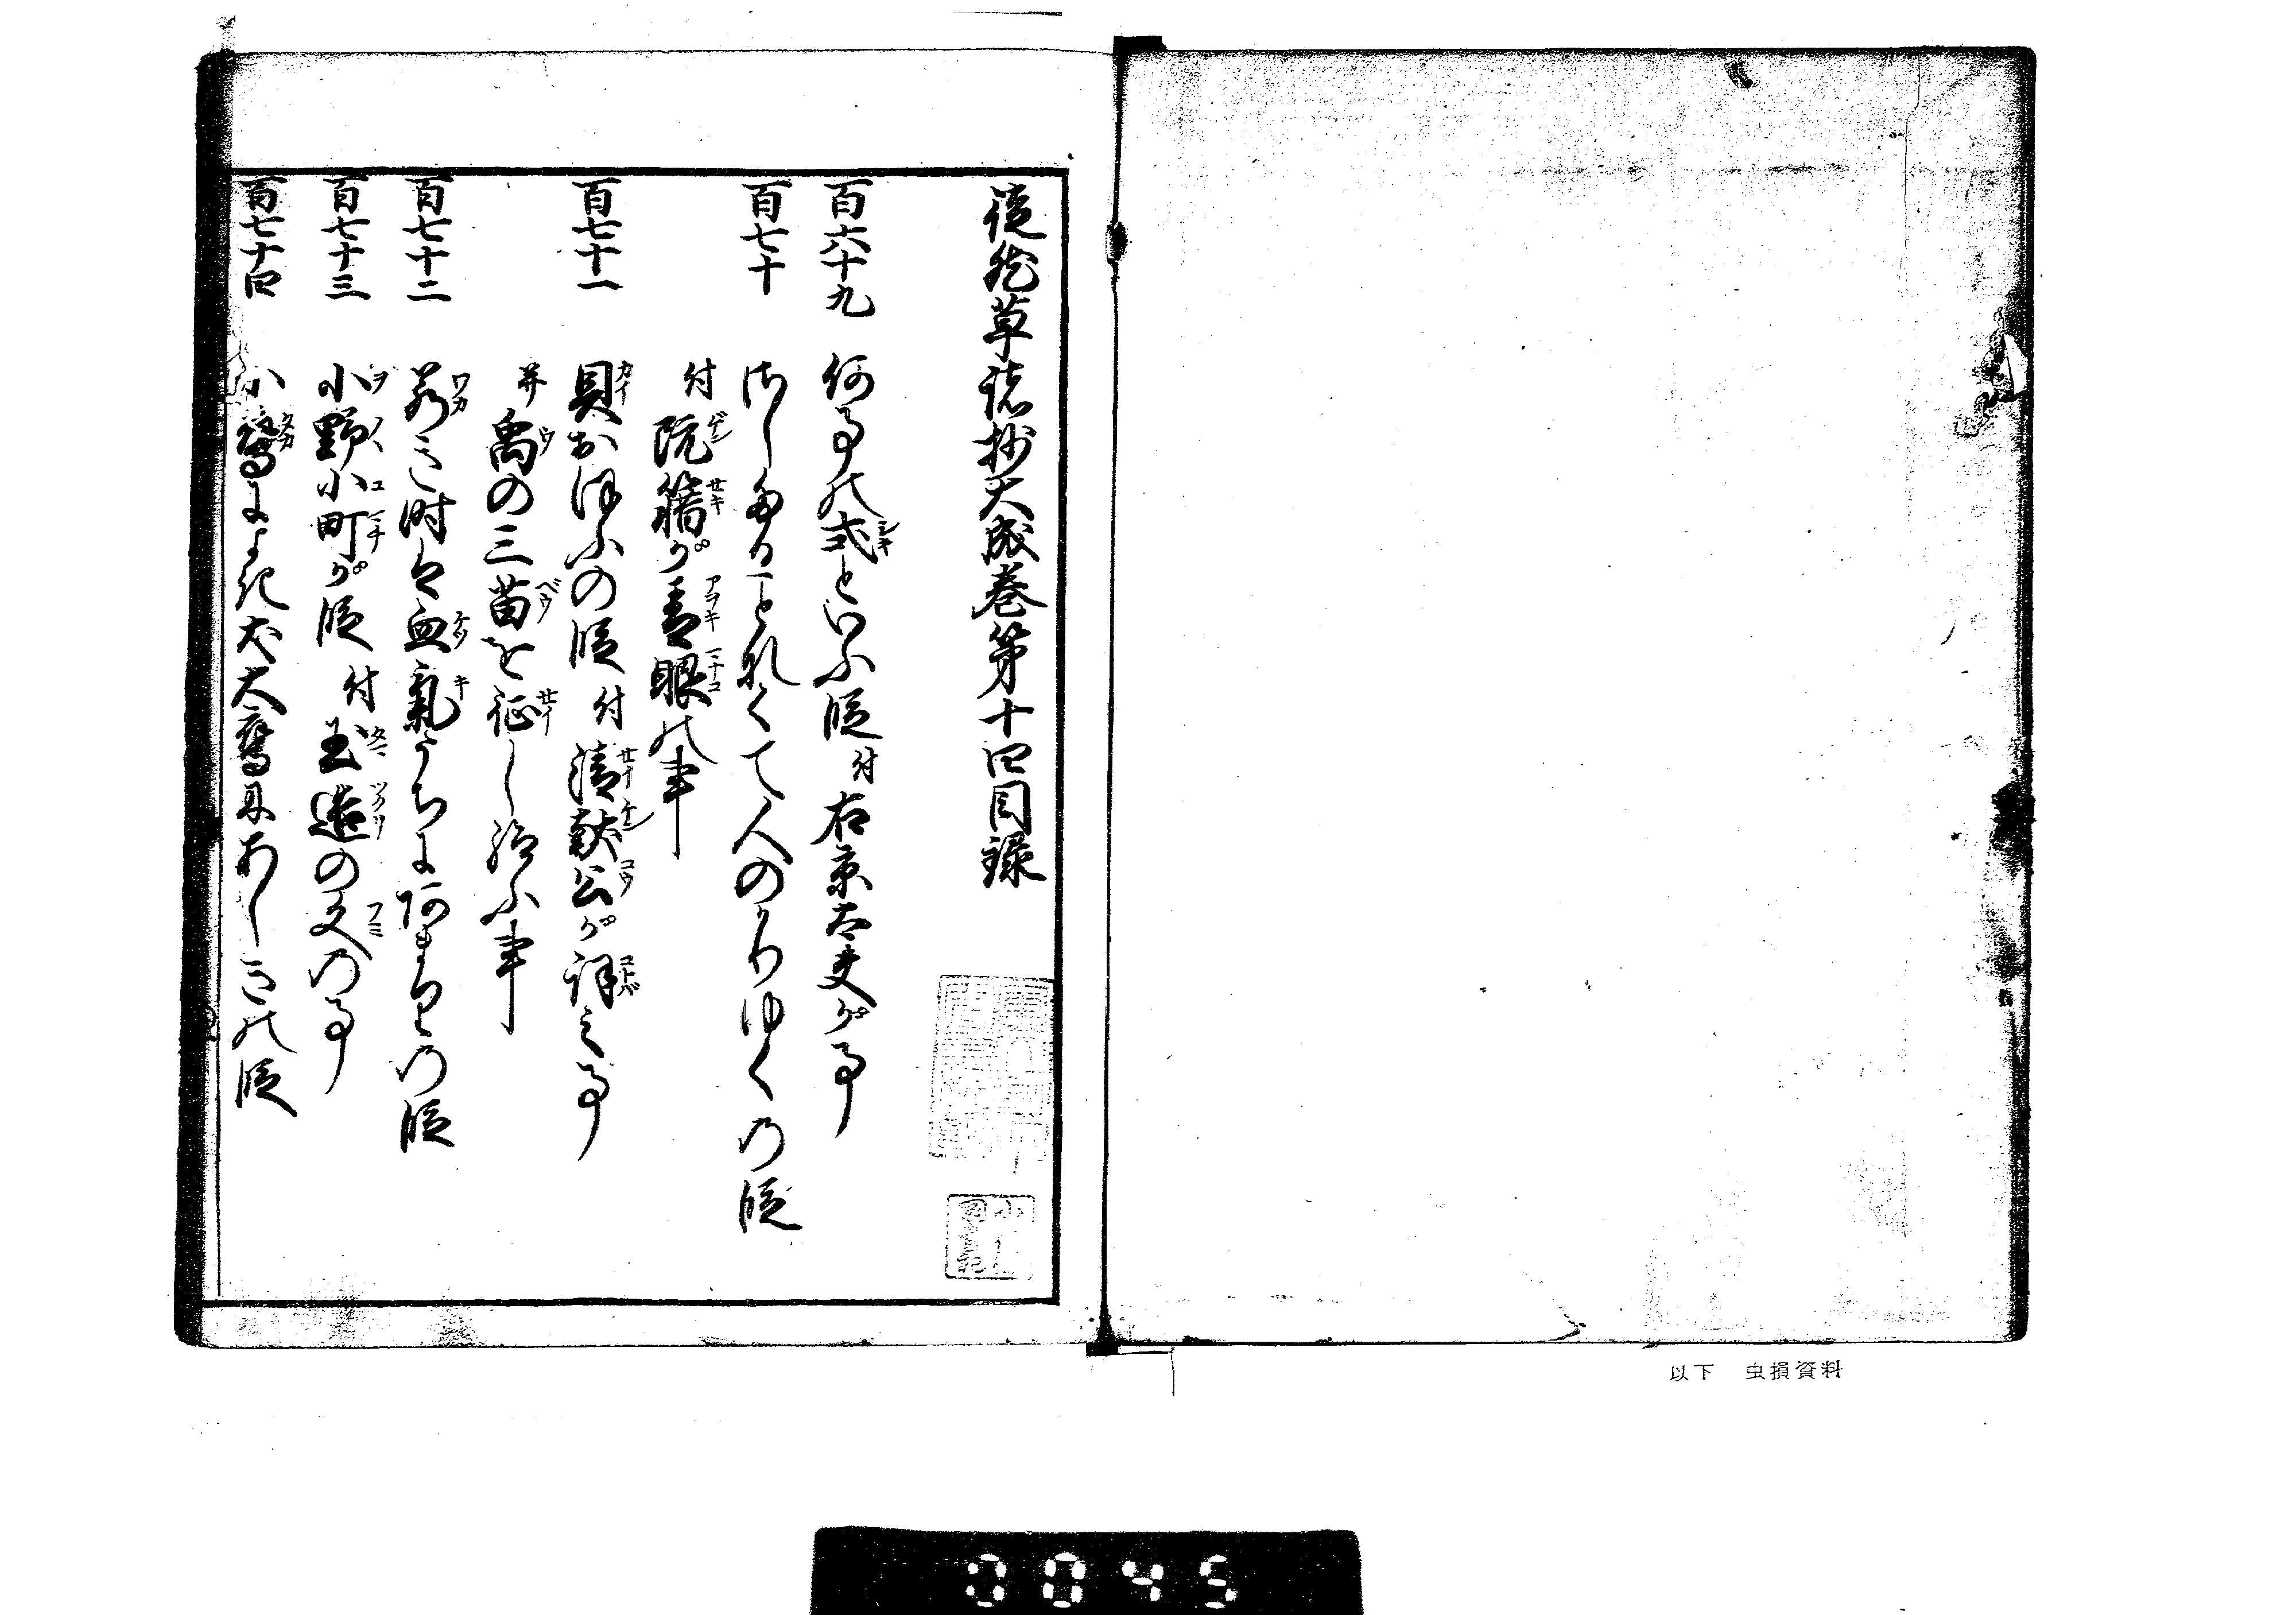 徒然草諸抄大成巻第十四目録
百六十九　何事の式といふ段付右京太夫が事
百七十　さしたることなくて人のがりゆくの段
付阮籍が青眼の事
百七十一　貝おほふの段　付清献公が詞之事
并禹の三苗を征し給ふ事
百七十二　若き時は血氣うちにあまりの段
百七十三　小野小町が段　付玉造の文の事
百七十四　小鷹によき犬大鷹にあしきの段
以下　虫損資料
0045